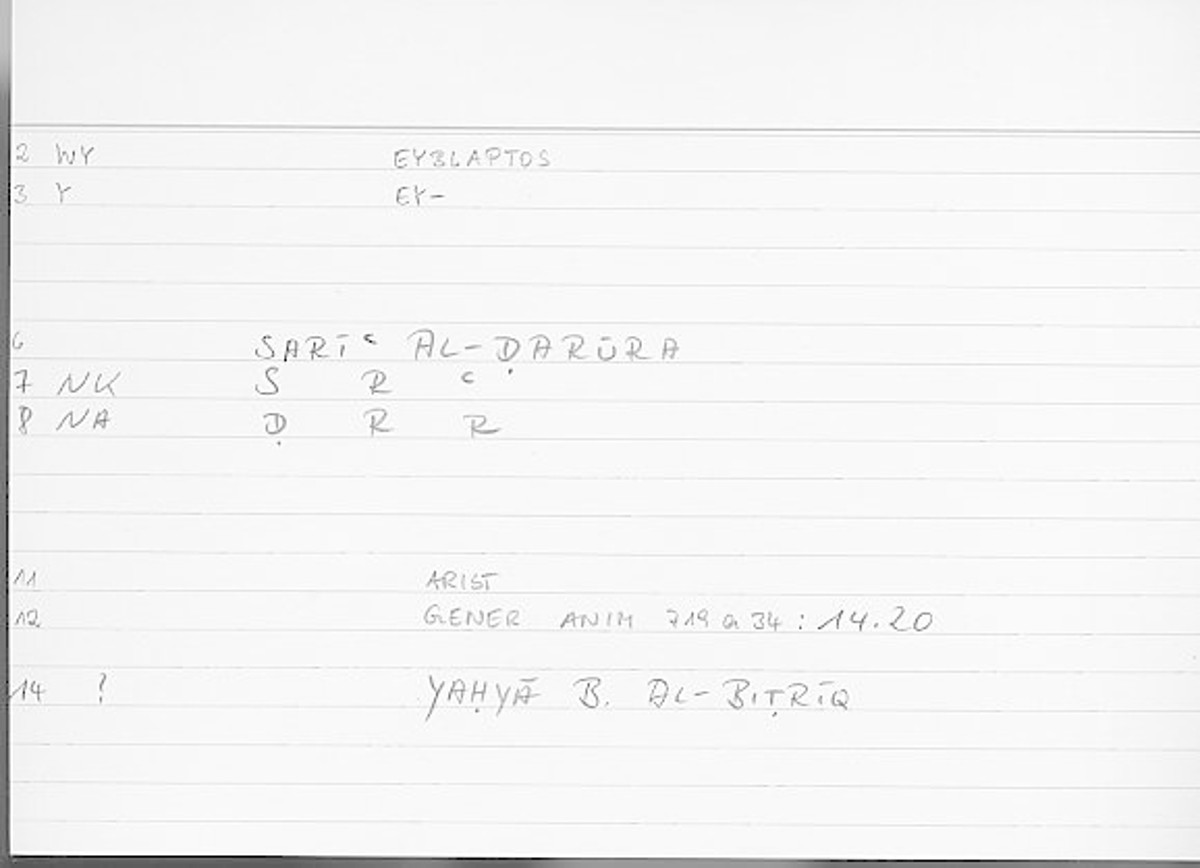 2 WY EYBLAPTOS
3 Y EY-
6 SARĪʿ AL-ḌARŪRA
7 NK S R ʿ
8 NA Ḍ R R
11 ARIST
12 GENER ANIM 719 a 34 : 14.20
14 ? YAḤYĀ B. AL-BIṬRĪQ